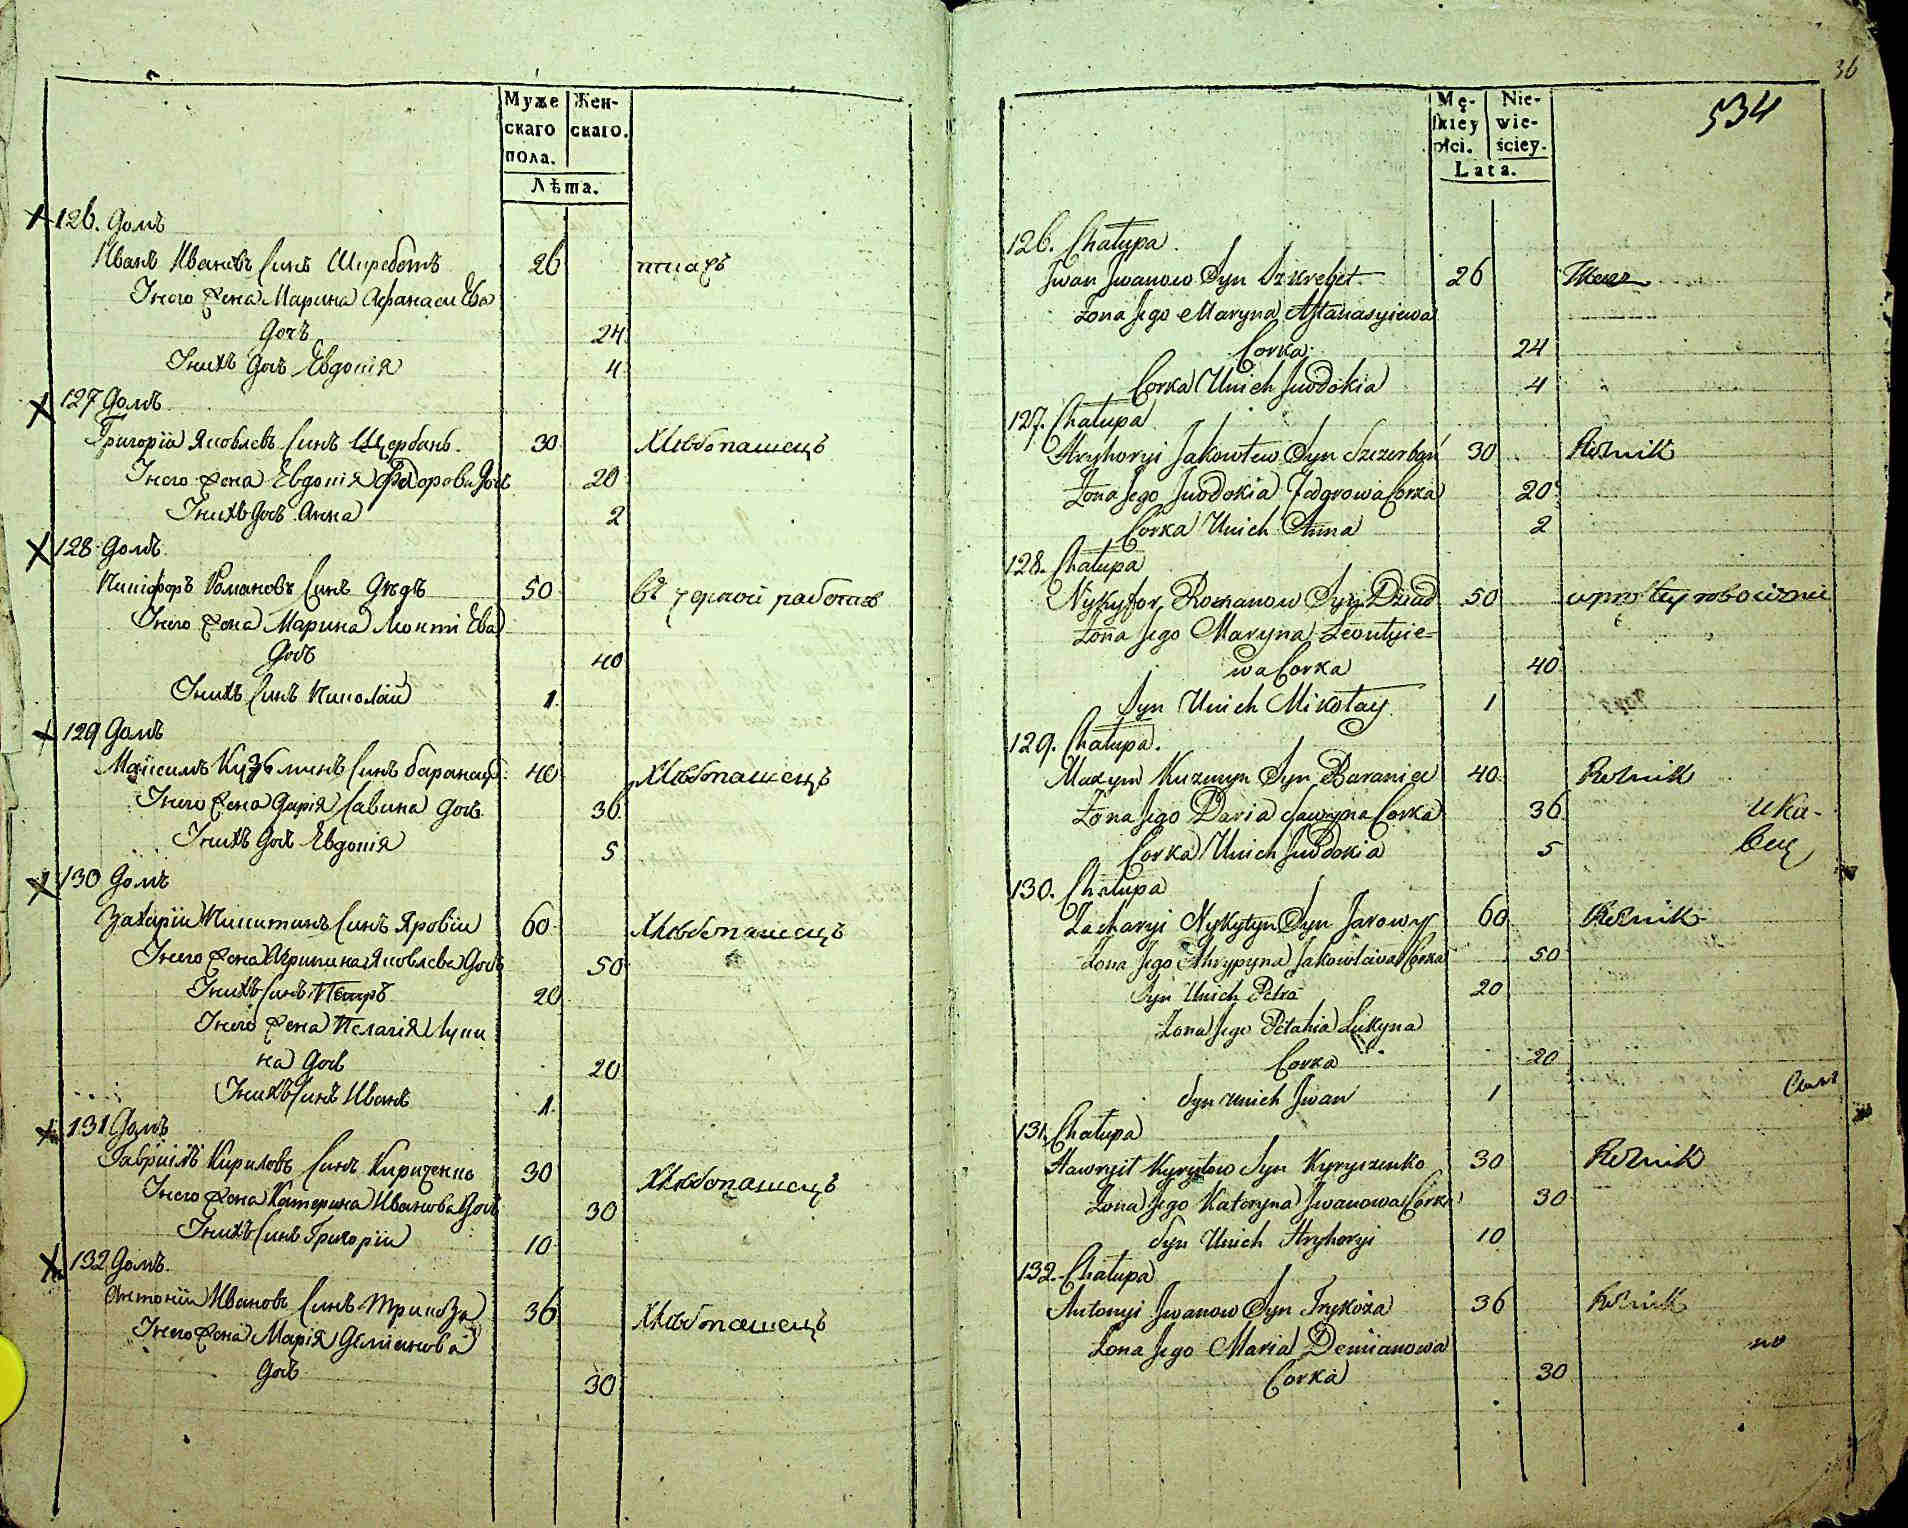 Муже Жен-
скаго скаго.
пола.
Лѣта.
126. Домъ
Иванъ Ивановъ Синъ 26 ткачъ
Іного Жена Марина Афанасиева
Дочъ 24
Їнихъ Дочъ Евдокія 4
127 Домъ
Григорій Яковлевъ Синъ Щербань 30 Хлѣбопашецъ
Їного Жена Евдокія Федорова Дочъ 20
Їнихъ Дочъ Анна 2
128 Домъ
Никифоръ Романовъ Синъ Дѣдъ 50 въ черной работѣ
Їного Жена Марина Леонтіева
Дочъ 40
Їнихъ Синъ Николай 1
129 Домъ
Максимъ Кузьминъ Синъ Баранецъ 40 Хлѣбопашецъ
Їного Жена Дарія Савина Дочъ 36
Їнихъ Дочъ Евдокія 5
130 Домъ
Захарій Никитинъ Синъ Яровій 60 Хлѣбопашецъ
Їного Жена Агрипина Яковлева Дочъ 50
Їнихъ Синъ Петръ 20
Їного Жена Пелагія Луки
на Дочъ 20
Їнихъ Синъ Иванъ 1
131 Домъ
Гавріилъ Кириловъ Синъ Кириченко 30 Хлѣбопашецъ
Їного Жена Катерина Иванова Дочъ 30
Їнихъ Синъ Григорій 10
132 Домъ
Антоній Ивановъ Синъ Трикоза 36 Хлѣбопашецъ
Їного Жена Марія Деміянова
Дочъ 30
36
534
Mę- Nie-
skiey wie-
płci. ściey.
Lata.
126. Chałupa
Jwan Jwanow Syn Szkrebet 26 Tkacz
Żona Jego Maryna Aftanasyiewa
Corka 24
Corka Unich Jwdokia 4
127. Chałupa
Hryhoryi Jakowlew Syn Szczerbań 30 Rolnik
Żona Jego Jwdokia Fedorowa Corka 20
Corka Unich Anna 2
128. Chałupa
Nykyfor Romanow Syn Dziad 50
Żona Jego Maryna Leontyie-
wa Corka 40
Syn Unich Mikołay 1
129. Chałupa.
Maxym Kuzmyn Syn Baraniec 40 Rolnik
Żona Jego Daria Sawyna Corka 36
Corka Unich Jwdokia 5
130. Chałupa
Zacharyi Nykytyn Syn Jarowy 60 Rolnik
Żona Jego Ahrypyna Jakowlewa Corka 50
Syn Unich Petro 20
Żona Jego Pelahia Lukyna
Corka 20
Syn Unich Jwan 1
131. Chałupa
Hawryił Kyryłow Syn Kyryczenko 30 Rolnik
Żona Jego Kateryna Jwanowa Corka 30
Syn Unich Hryhoryi 10
132. Chałupa
Antonyi Jwanow Syn Trykoza 36 Rolnik
Żona Jego Maria Demianowa
Corka 30